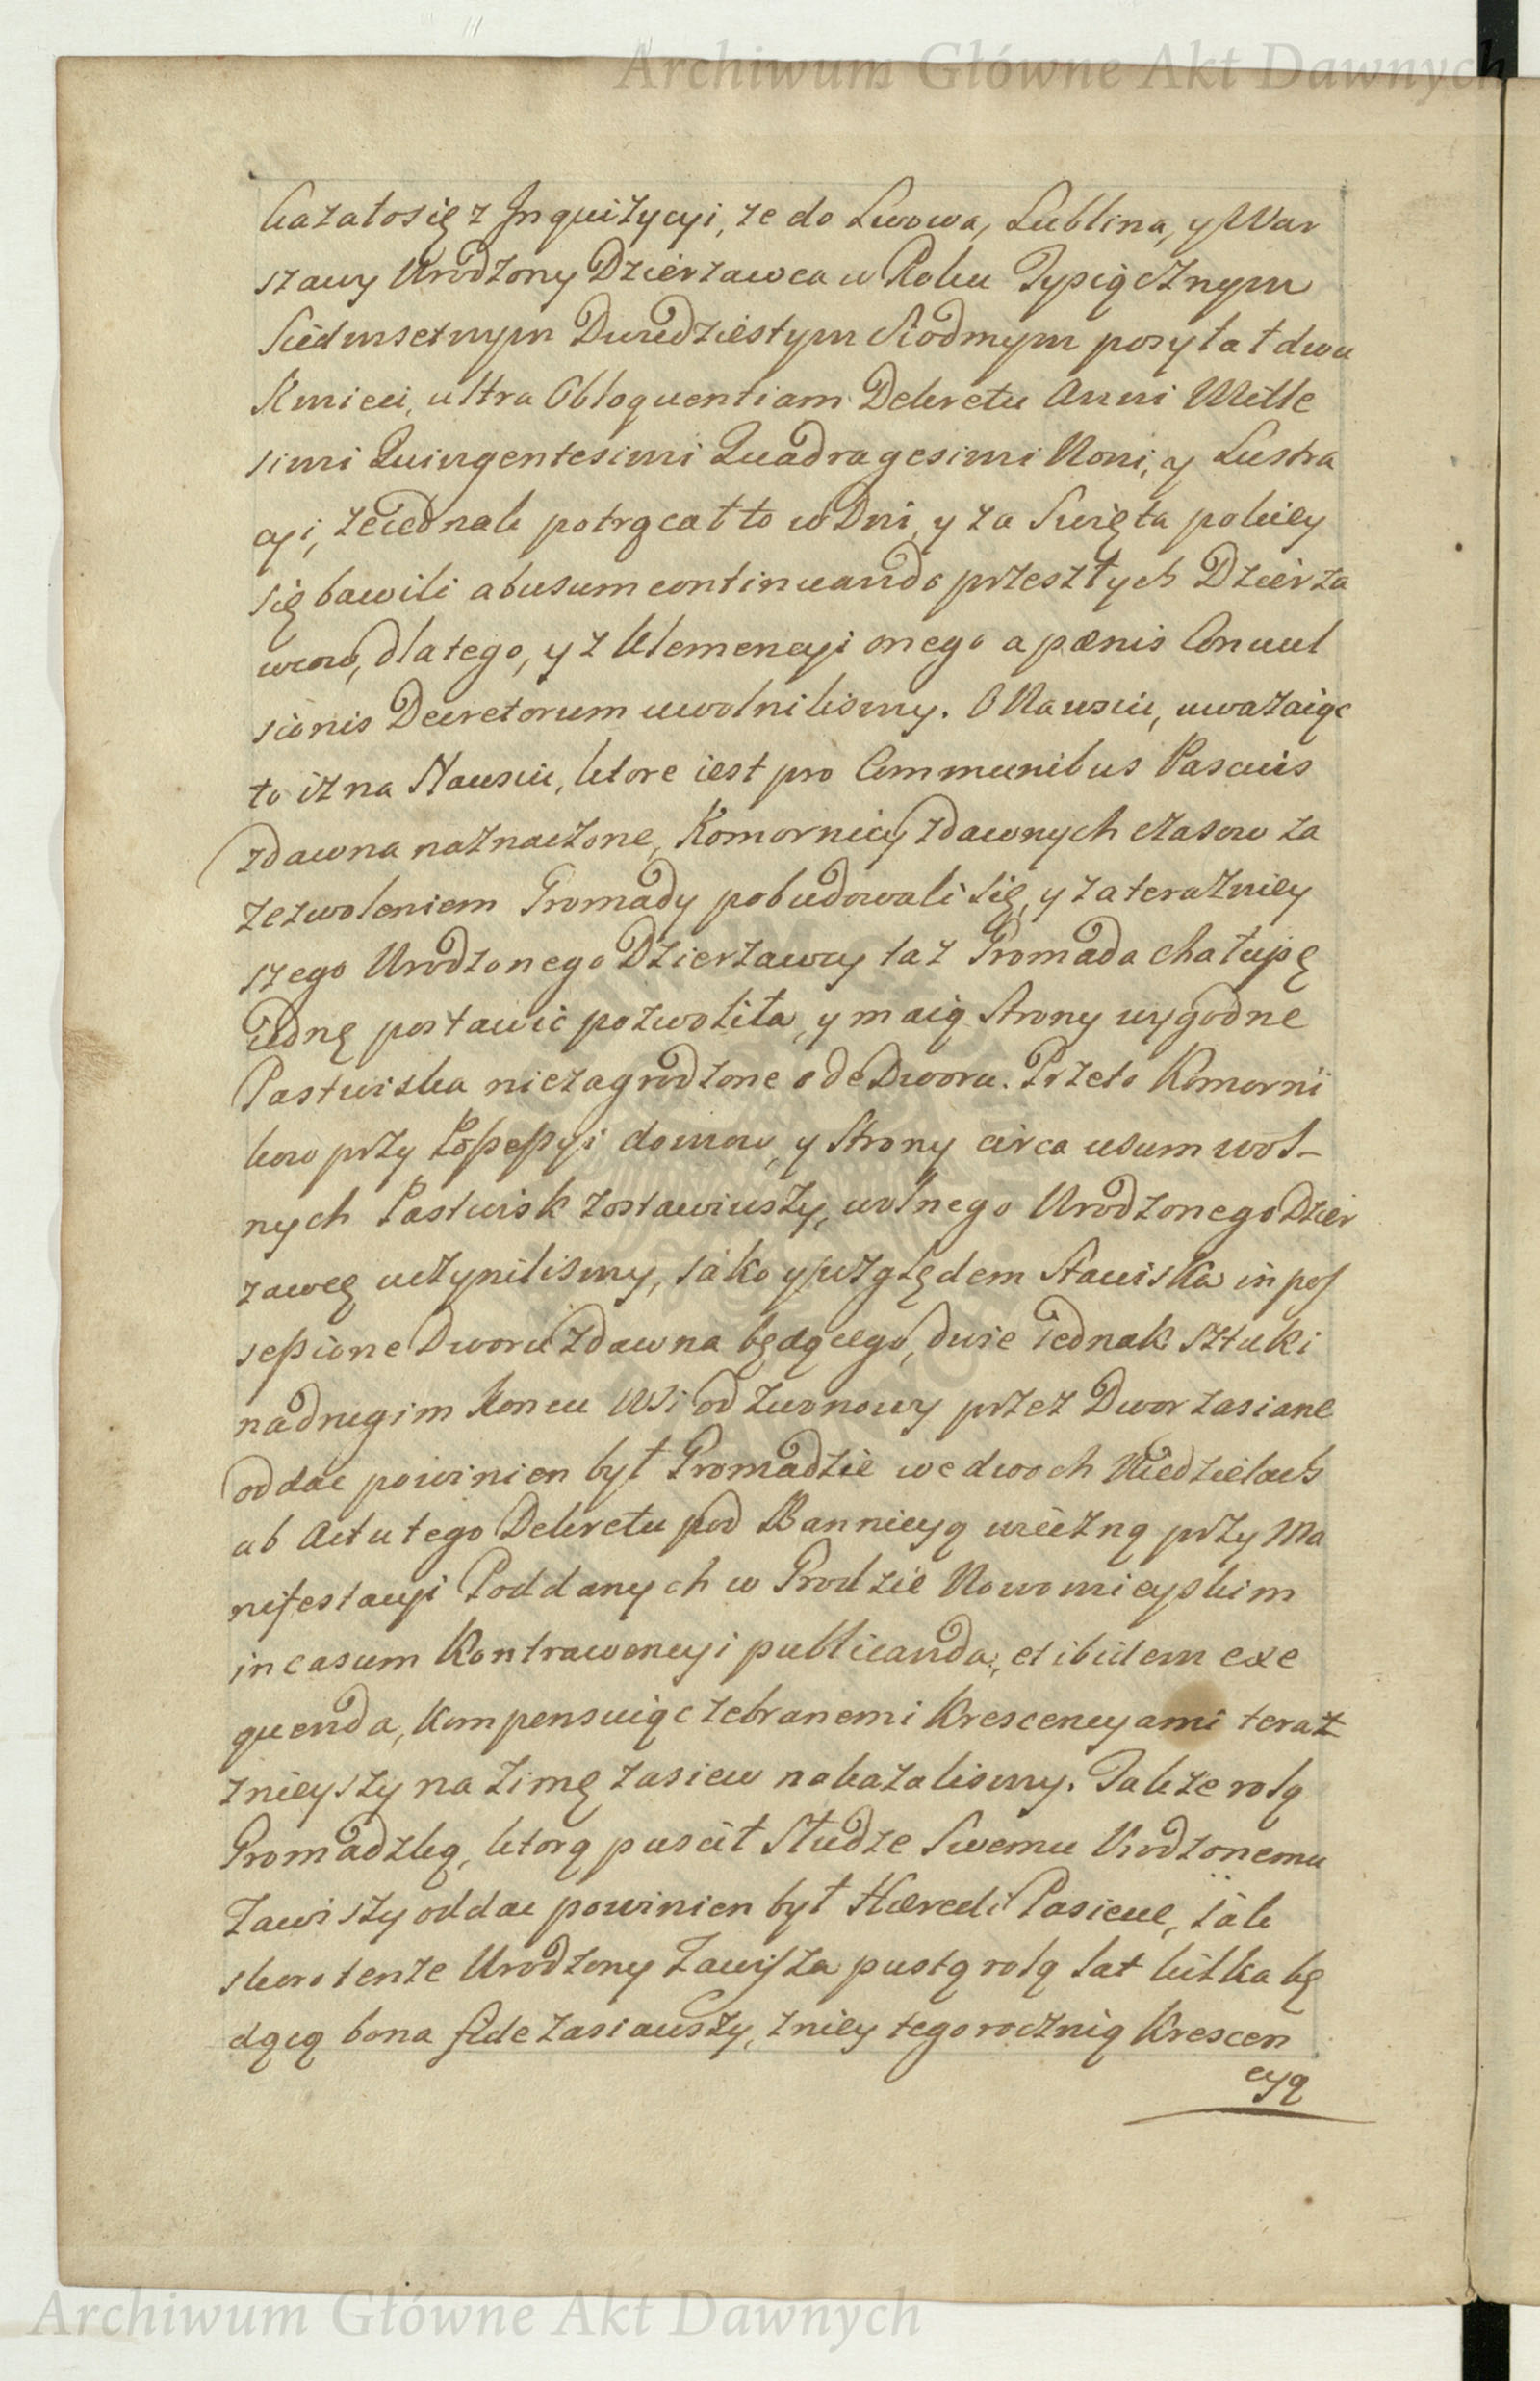 Archiwum Główne Akt Dawnych
kazało się z Inquizycyi, że do Lwowa, Lublina, y War
szawy Urodzony Dzierzawca w Roku Tysiącznym
Siedmsetnym Dwudziestym Siodmym posyłał dwu
Kmieci, ultra Obloquentiam Dekretu Anni Mille
simi Quingentesimi Quadragesimi Noni, y Lustra
cyi, że iednak potrącał to w Dni, y za Swięta pokiey
się bawili abusum continuando przeszłych Dzierza
wcow, dlatego, y z Klemencyi onego a pœnis Convul
sionis Decretorum uwolnilismy. O Nawsiu, uważaiąc
to iż na Nawsiu, ktore iest pro Communibus Pascuis
zdawna naznaczone, Komornicy zdawnych czasow za
zezwoleniem Gromady pobudowali się, y za teraźniey
szego Urodzonego Dzierzawcy taż Gromada chałupę
iednę postawić pozwoliła, y maią Strony wygodne
Pastwiska niezagrodzone ode Dworu. Przeto Komorni
kow przy Possessyi domow, y Strony circa usum wol-
nych Pastwisk zostawiwszy, wolnego Urodzonego Dzier
zawcę uczynilismy, iako y względem Stawiska in pos
sessione Dworu zdawna będącego, dwie iednak Sztuki
na drugim Koncu Wsi od Zwonowy przez Dwor zasiane
oddac powinien był Gromadzie we dwoch Niedzielach
ab Actu tego Dekretu pod Bannicyą wieczną przy Ma
nifestacyi Poddanych w Grodzie Nowomieyskim
in casum Kontrawencyi publicanda, et ibidem exe
quenda, Kompensuiąc zebranemi Krescencyami teraz
znieyszy na zimę zasiew nakazalismy. Także rolą
Gromadzką, ktorą puscił Słudze Swemu Urodzonemu
Zawiszy oddac powinien był Hæredi Pasieue, iak
skoro tenże Urodzony Zawisza pustą rolą lat kilka bę
dącą bona fide zasiawszy, zniey tegorocznią Krescen
cyą
Archiwum Główne Akt Dawnych